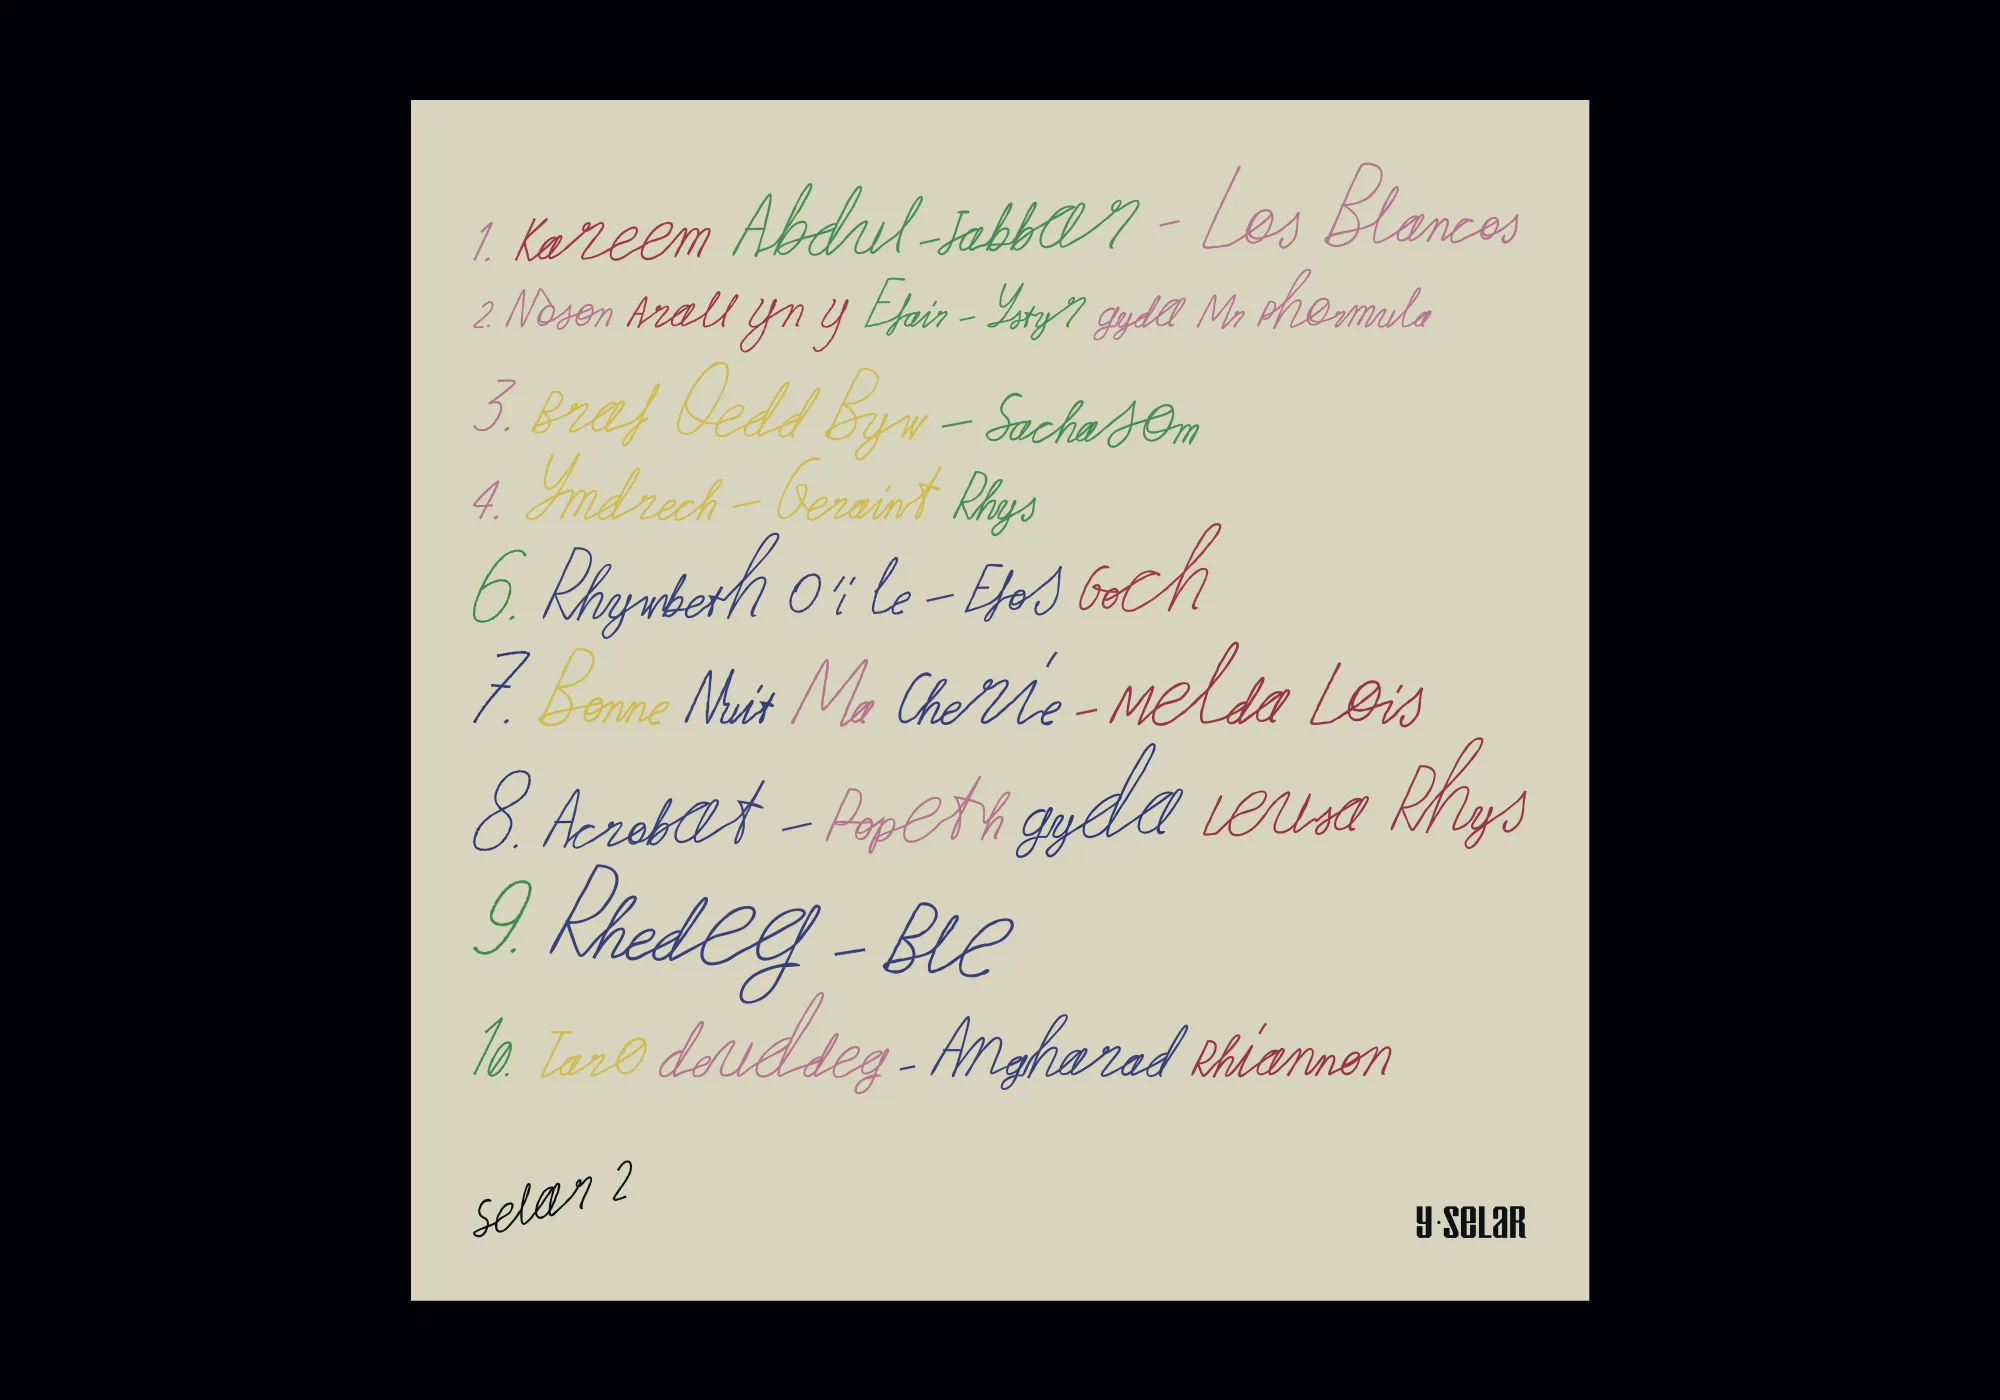 1. Kareem Abdul-Jabbar - Los Blancos
2. Noson Arall yn y Efair - Ystyr gyda Mr Phormula
3. Braf Oedd Byw - Sachasom
4. Ymdrech - Geraint Rhys
6. Rhywbeth O'i le - Efos Goch
7. Bonne Nuit Ma Chérie - Melda Lois
8. Acrobat - Popeth gyda Leusa Rhys
9. Rhedeg - Ble
10. Taro douddeg - Angharad Rhiannon
selar 2
Y·SELAR